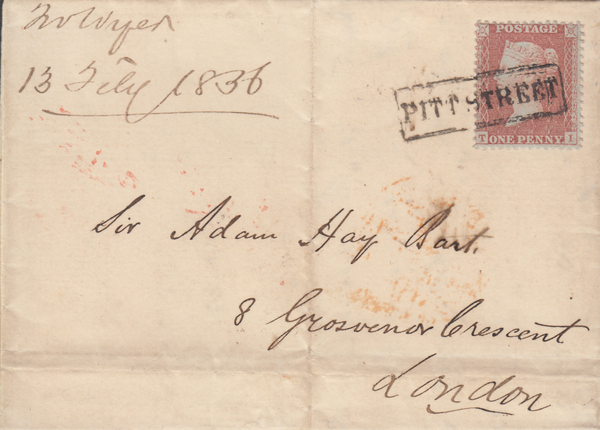 13 Feby 1856
POSTAGE
PITT STREET
T I
ONE PENNY
Sir Adam Hay Bart.
8 Grosvenor Crescent
London